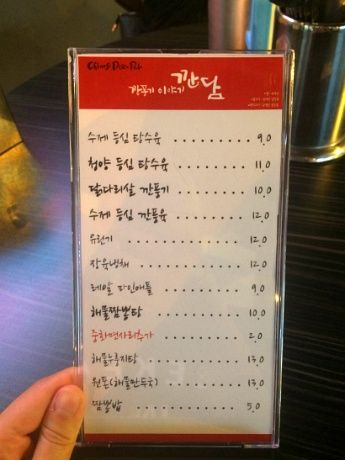 깐담
깐풍기 이야기
수제 등심 탕수육 9.0
청양 등심 탕수육 11.0
닭다리살 깐풍기 10.0
수제 등심 깐풍육 12.0
유린기 12.0
장육냉채 12.0
레알 파인애플 9.0
해물짬뽕탕 10.0
중화면사리추가 2.0
해물누룽지탕 13.0
완톤(해물만두국) 13.0
짬뽕밥 5.0